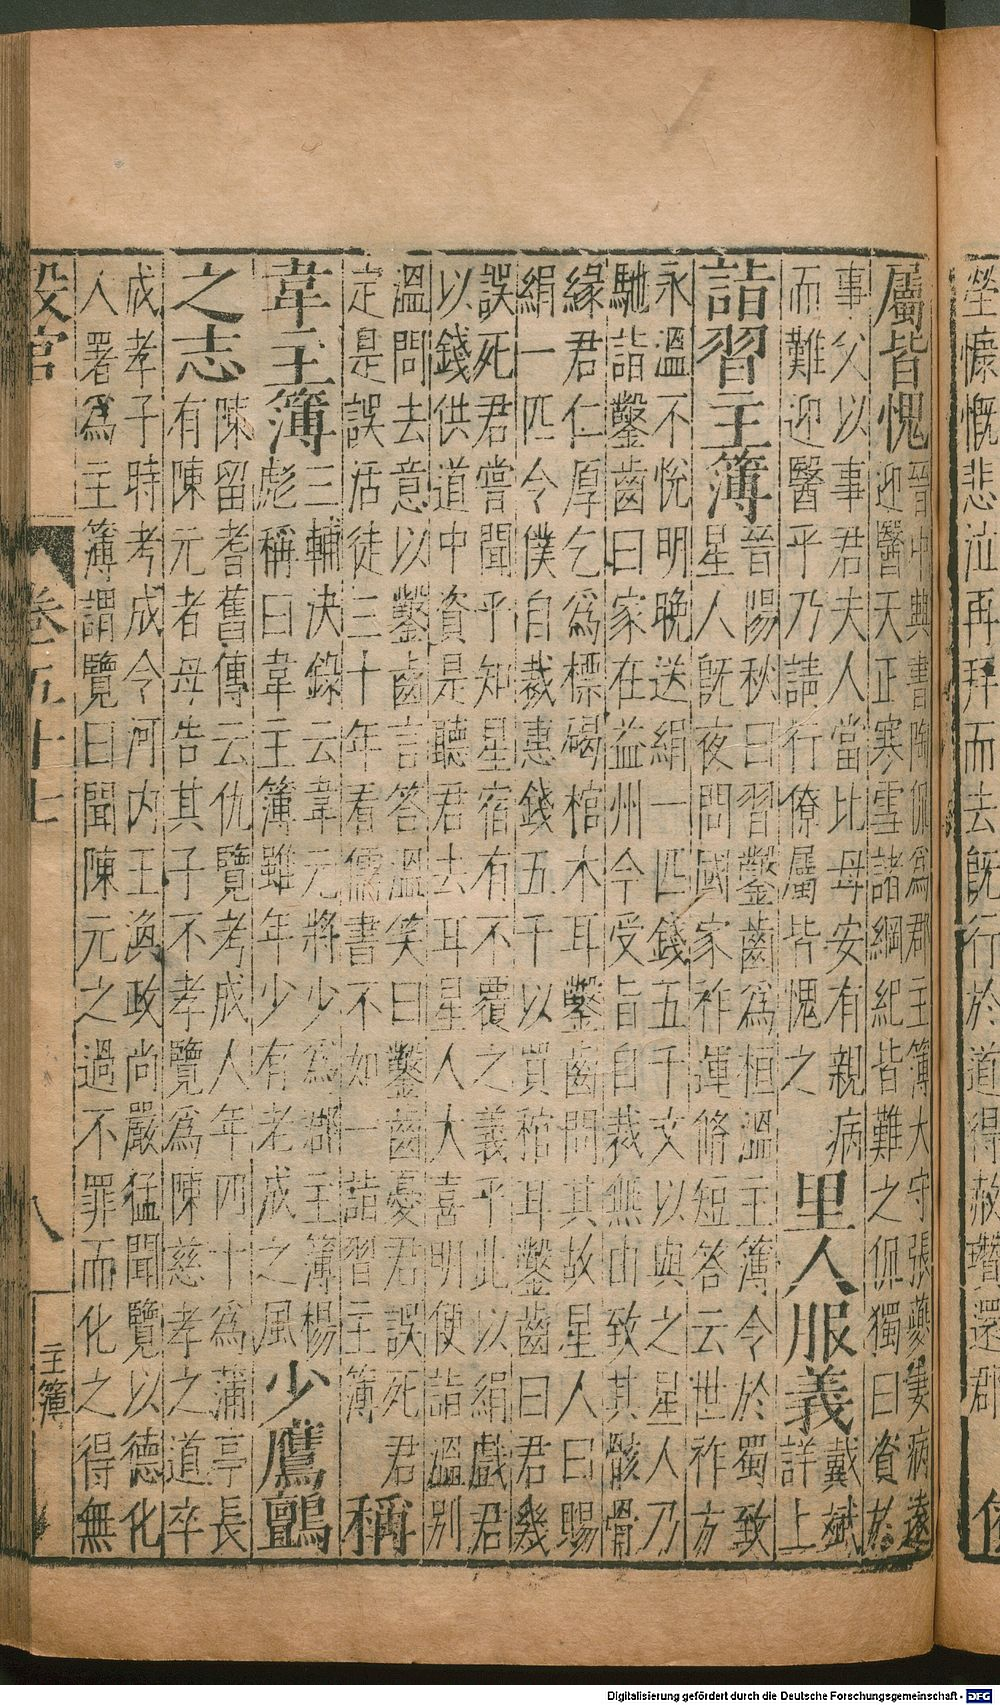 瑩慷慨悲泣再拜而去旣行於道得赦瓚還郡
屬皆愧
晉中興書陶侃爲郡主簿大守張夔妻病遠
迎醫天正寒雪諸綱紀皆難之侃獨曰資於
事父以事君夫人當比母安有親病
而難迎醫乎乃請行僚屬皆愧之
里人服義
戴斌
詳上
詣習主簿
晉陽秋曰習鑿齒爲桓溫主簿令於蜀致
星人旣夜問國家祚運脩短答云世祀方
永溫不悅明晚送絹一匹錢五千文以與之星人乃
馳詣鑿齒曰家在益州今受旨自裁無由致其骸骨
緣君仁厚乞爲標碣棺木耳鑿齒問其故星人曰賜
絹一匹令僕自裁惠錢五千以買棺耳鑿齒曰君幾
誤死君嘗聞乎知星宿有不覆之義乎此以絹戲君
以錢供道中資是聽君去耳星人大喜明便詣溫別
溫問去意以鑿齒言答溫笑曰鑿齒憂君誤死君
定是誤活徒三十年看儒書不如一詣習主簿
稱
韋主簿
三輔決錄云韋元將少爲郡主簿楊
彪稱曰韋主簿雖年少有老成之風
少鷹鸇
之志
陳留耆舊傳云仇覽考成人年四十爲蒲亭長
有陳元者母告其子不孝覽爲陳慈孝之道卒
成孝子時考成令河內王渙政尚嚴猛聞覽以德化
人署爲主簿謂覽曰聞陳元之過不罪而化之得無
設官
卷五十七
八
主簿
Digitalisierung gefördert durch die Deutsche Forschungsgemeinschaft - DFG